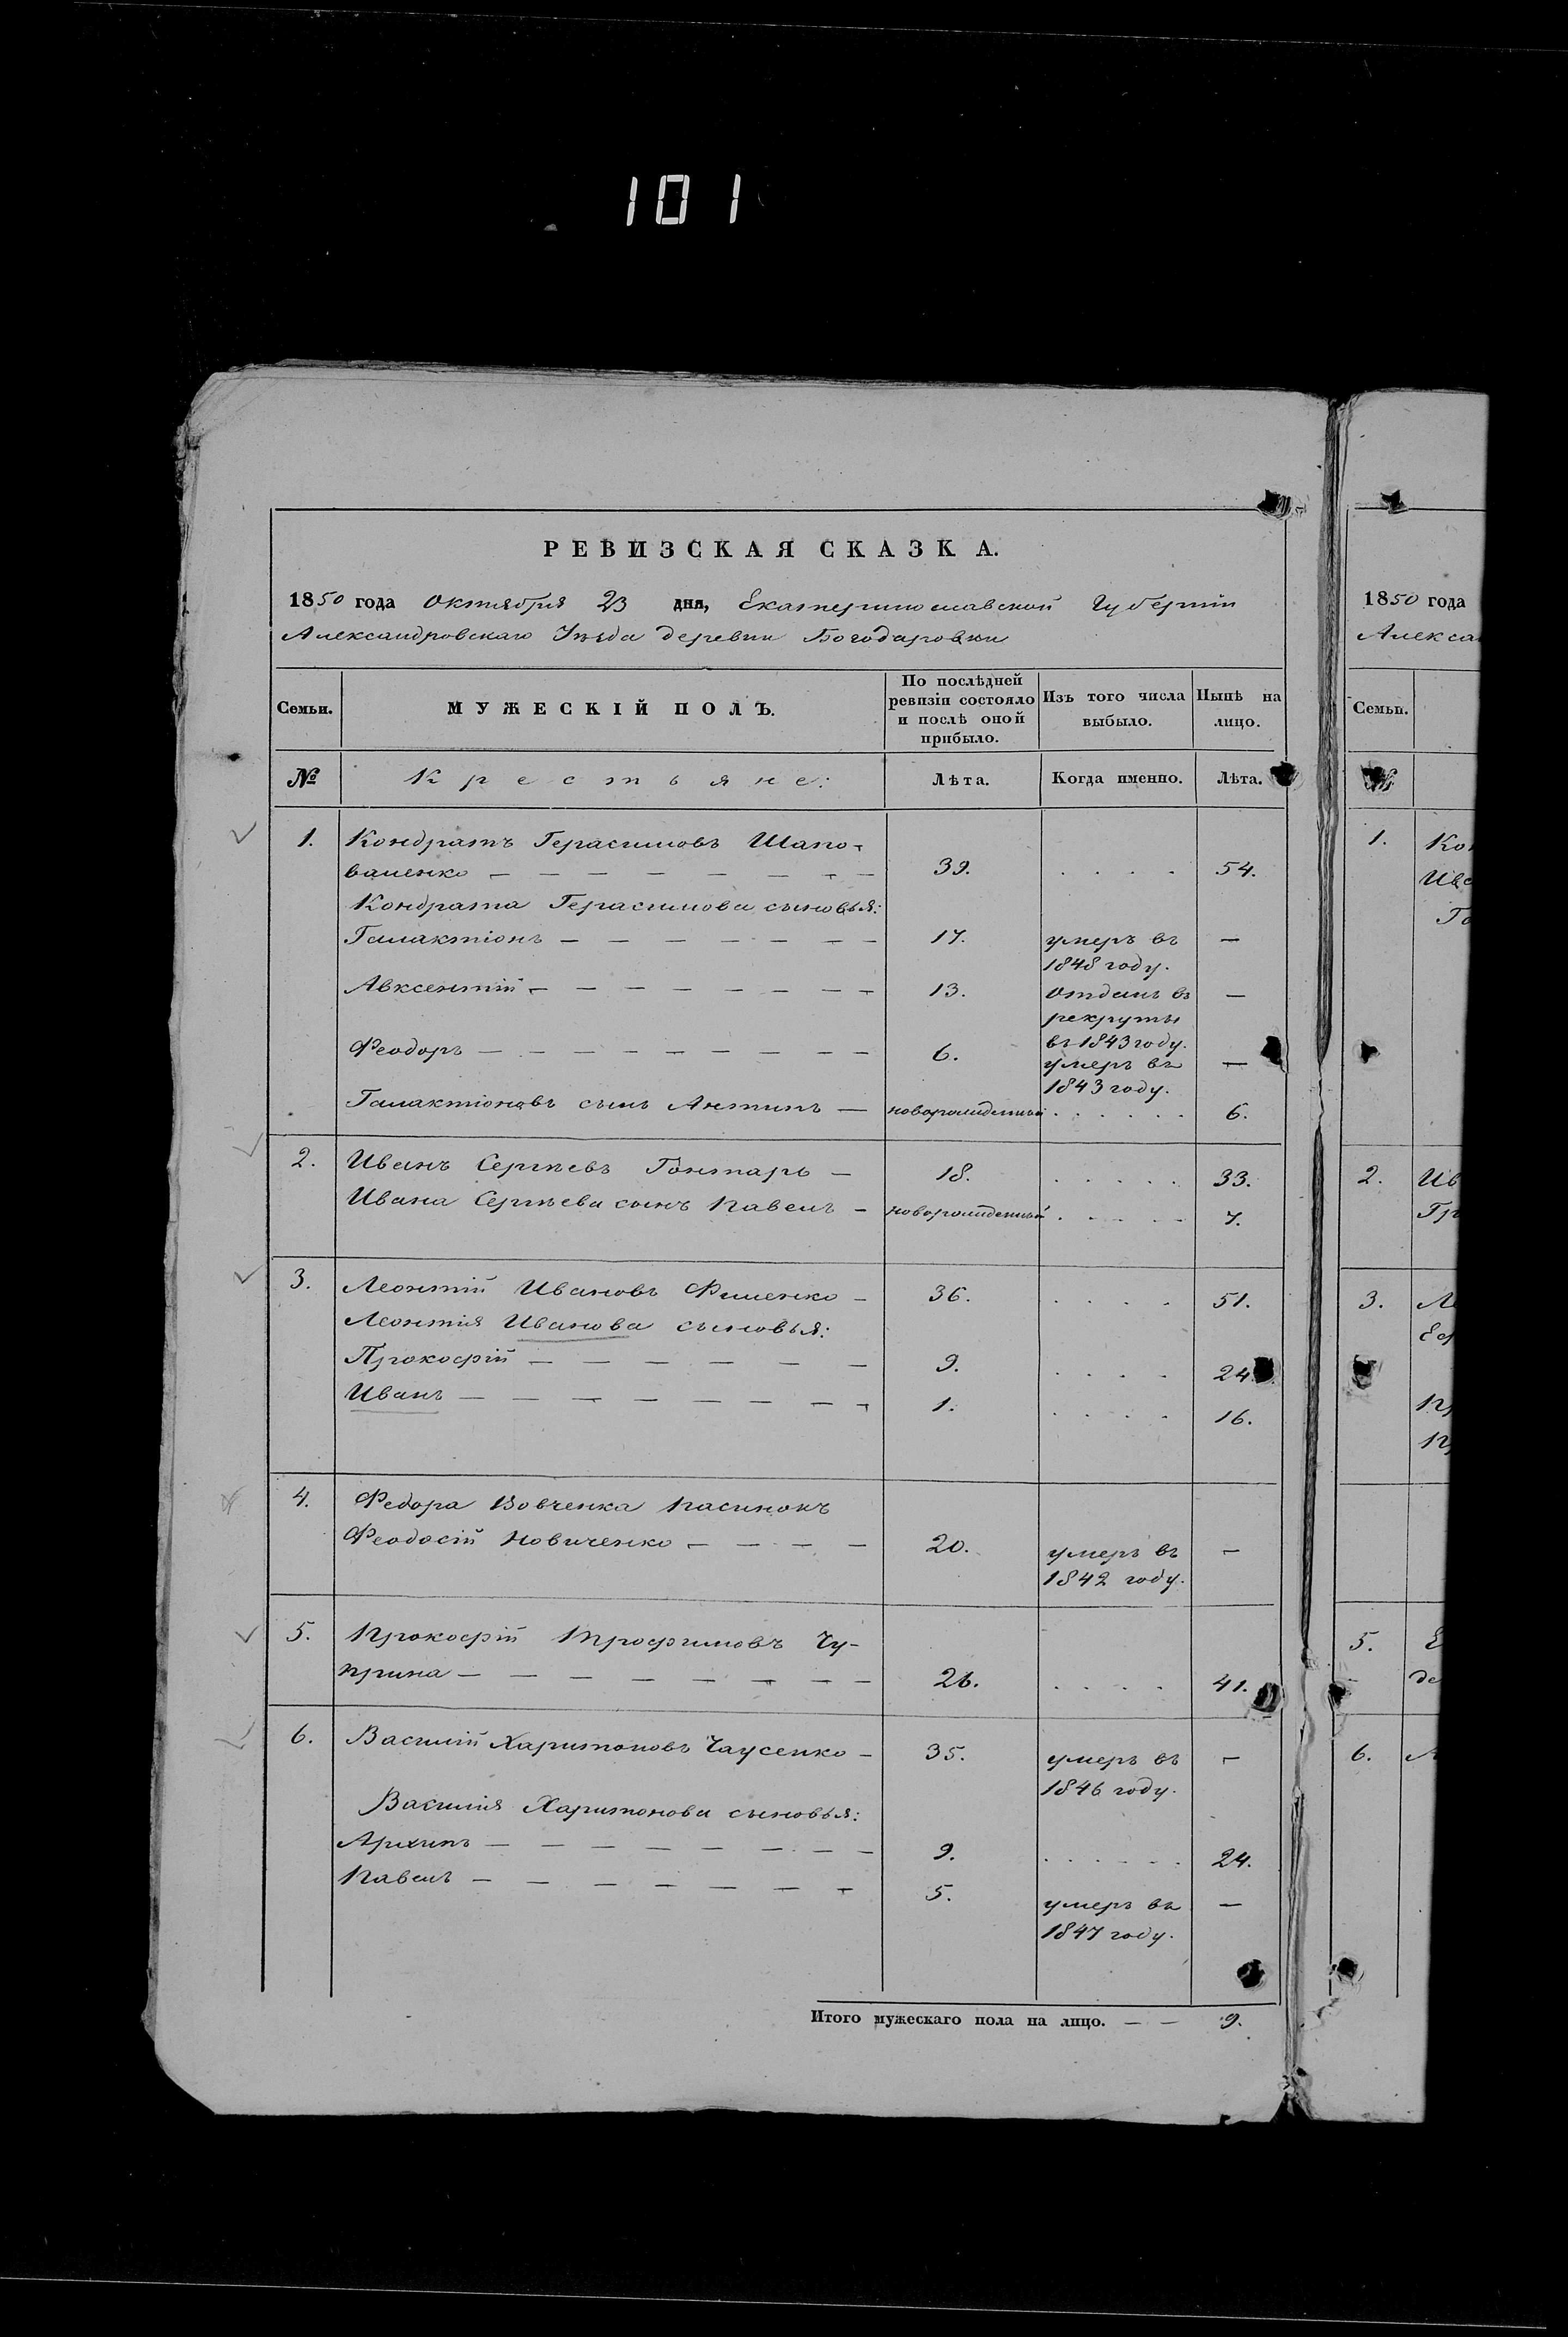 101
РЕВИЗСКАЯ СКАЗКА.
1850 года Октября 23 дня, Екатеринославской Губерніи
Александровскаго Уѣзда деревни Богодаровки
Семьи. МУЖЕСКІЙ ПОЛЪ. По послѣдней ревизіи состояло и послѣ оной прибыло. Изъ того числа выбыло. Нынѣ на лицо.
№ Крестьяне: Лѣта. Когда именно. Лѣта.
1. Кондратъ Герасимовъ Шапо-
валенко — 39. . . . . 54.
Кондрата Герасимова сыновья:
Галактіонъ — 17. умеръ въ —
1848 году.
Авксентій — 13. отданъ въ —
рекруты
въ 1843 году.
Феодоръ — 6. умеръ въ —
1843 году.
Галактіоновъ сынъ Антипъ — новорожденный . . . . . . 6.
2. Иванъ Сергѣевъ Гонтарь — 18. . . . . . 33.
Ивана Сергѣева сынъ Павелъ — новорожденный . . . . . 7.
3. Леонтій Ивановъ Фименко — 36. . . . . 51.
Леонтія Иванова сыновья:
Прокофій — 9. . . . . 24.
Иванъ — 1. . . . . 16.
4. Федора Вовченка пасинокъ
Феодосій Новиченко — 20. умеръ въ —
1842 году.
5. Прокофій Трофимовъ Чу-
прина — 26. . . . . 41.
6. Василій Харитоновъ Чаусенко — 35. умеръ въ —
1846 году.
Василія Харитонова сыновья:
Архипъ — 9. . . . . . . 24.
Павелъ — 5. умеръ въ —
1847 году.
Итого мужескаго пола на лицо. — — 9.
1850 года
Алекса
Семьи.
№
1. Ко
Ив
Га
2. Ив
Гр
3. Ле
Еф
Пр
Пр
5. Е
де
6.